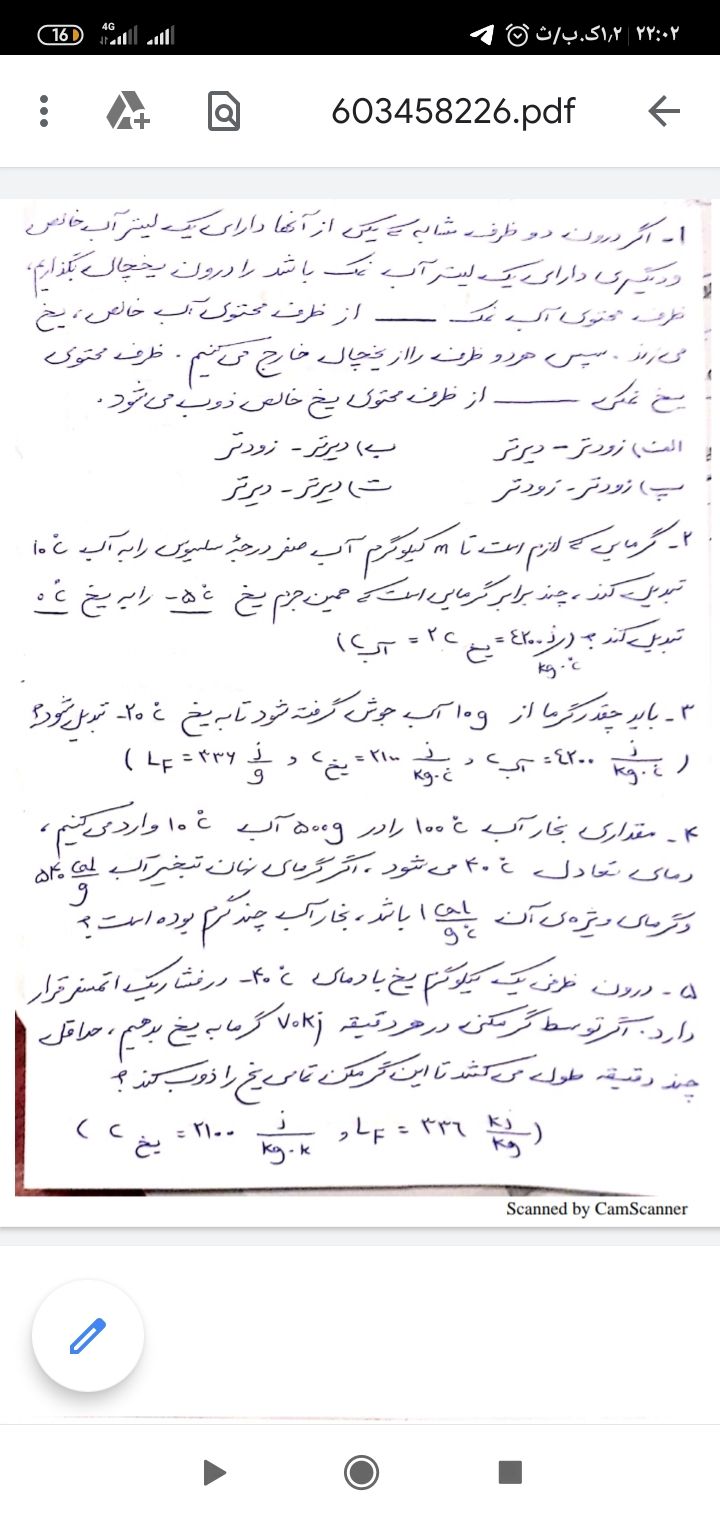 16 4G ۱٫۲ک.ب/ث ۲۲:۰۲
603458226.pdf
۱- اگر درون دو ظرف مشابه که یکی از آنها دارای یک لیتر آب خالص
و دیگری دارای یک لیتر آب نمک باشد را درون یخچال بگذاریم،
ظرف محتوی آب نمک ــــ از ظرف محتوی آب خالص، یخ
می‌زند. سپس هر دو ظرف را از یخچال خارج می‌کنیم. ظرف محتوی
یخ نمکی ــــ از ظرف محتوی یخ خالص ذوب می‌شود.
الف) زودتر - دیرتر ب) دیرتر - زودتر
پ) زودتر - زودتر ت) دیرتر - دیرتر
۲- گرمایی که لازم است تا m کیلوگرم آب صفر درجهٔ سلسیوس را به آب ۱۰°c
تبدیل کند، چند برابر گرمایی است که همین جرم یخ ۵°c- را به یخ ۰°c
تبدیل کند؟ (آب c = ۲ یخ c = ۴۲۰۰ j/kg.°c)
۳- باید چقدر گرما از ۱۰g آب جوش گرفته شود تا به یخ ۲۰°c- تبدیل شود؟
(آب c = ۴۲۰۰ j/kg.°c و یخ c = ۲۱۰۰ j/kg.°c و LF = ۳۳۶ j/g)
۴- مقداری بخار آب ۱۰۰°c را در ۵۰۰g آب ۱۰°c وارد می‌کنیم،
دمای تعادل ۴۰°c می‌شود، اگر گرمای نهان تبخیر آب ۵۴۰ cal/g
و گرمای ویژه‌ی آن ۱ cal/g°c باشد، بخار آب چند گرم بوده است؟
۵- درون ظرفی یک کیلوگرم یخ با دمای ۴۰°c- در فشار یک اتمسفر قرار
دارد. اگر توسط گرمکنی در هر دقیقه ۷۰kj گرما به یخ بدهیم، حداقل
چند دقیقه طول می‌کشد تا این گرمکن تمامی یخ را ذوب کند؟
(یخ c = ۲۱۰۰ j/kg.k و LF = ۳۳۶ kj/kg)
Scanned by CamScanner